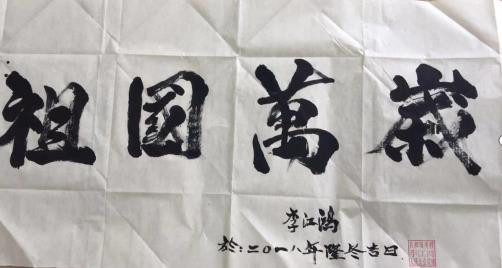 祖國萬歲
李江鴻
於:二〇一八年隆冬吉日